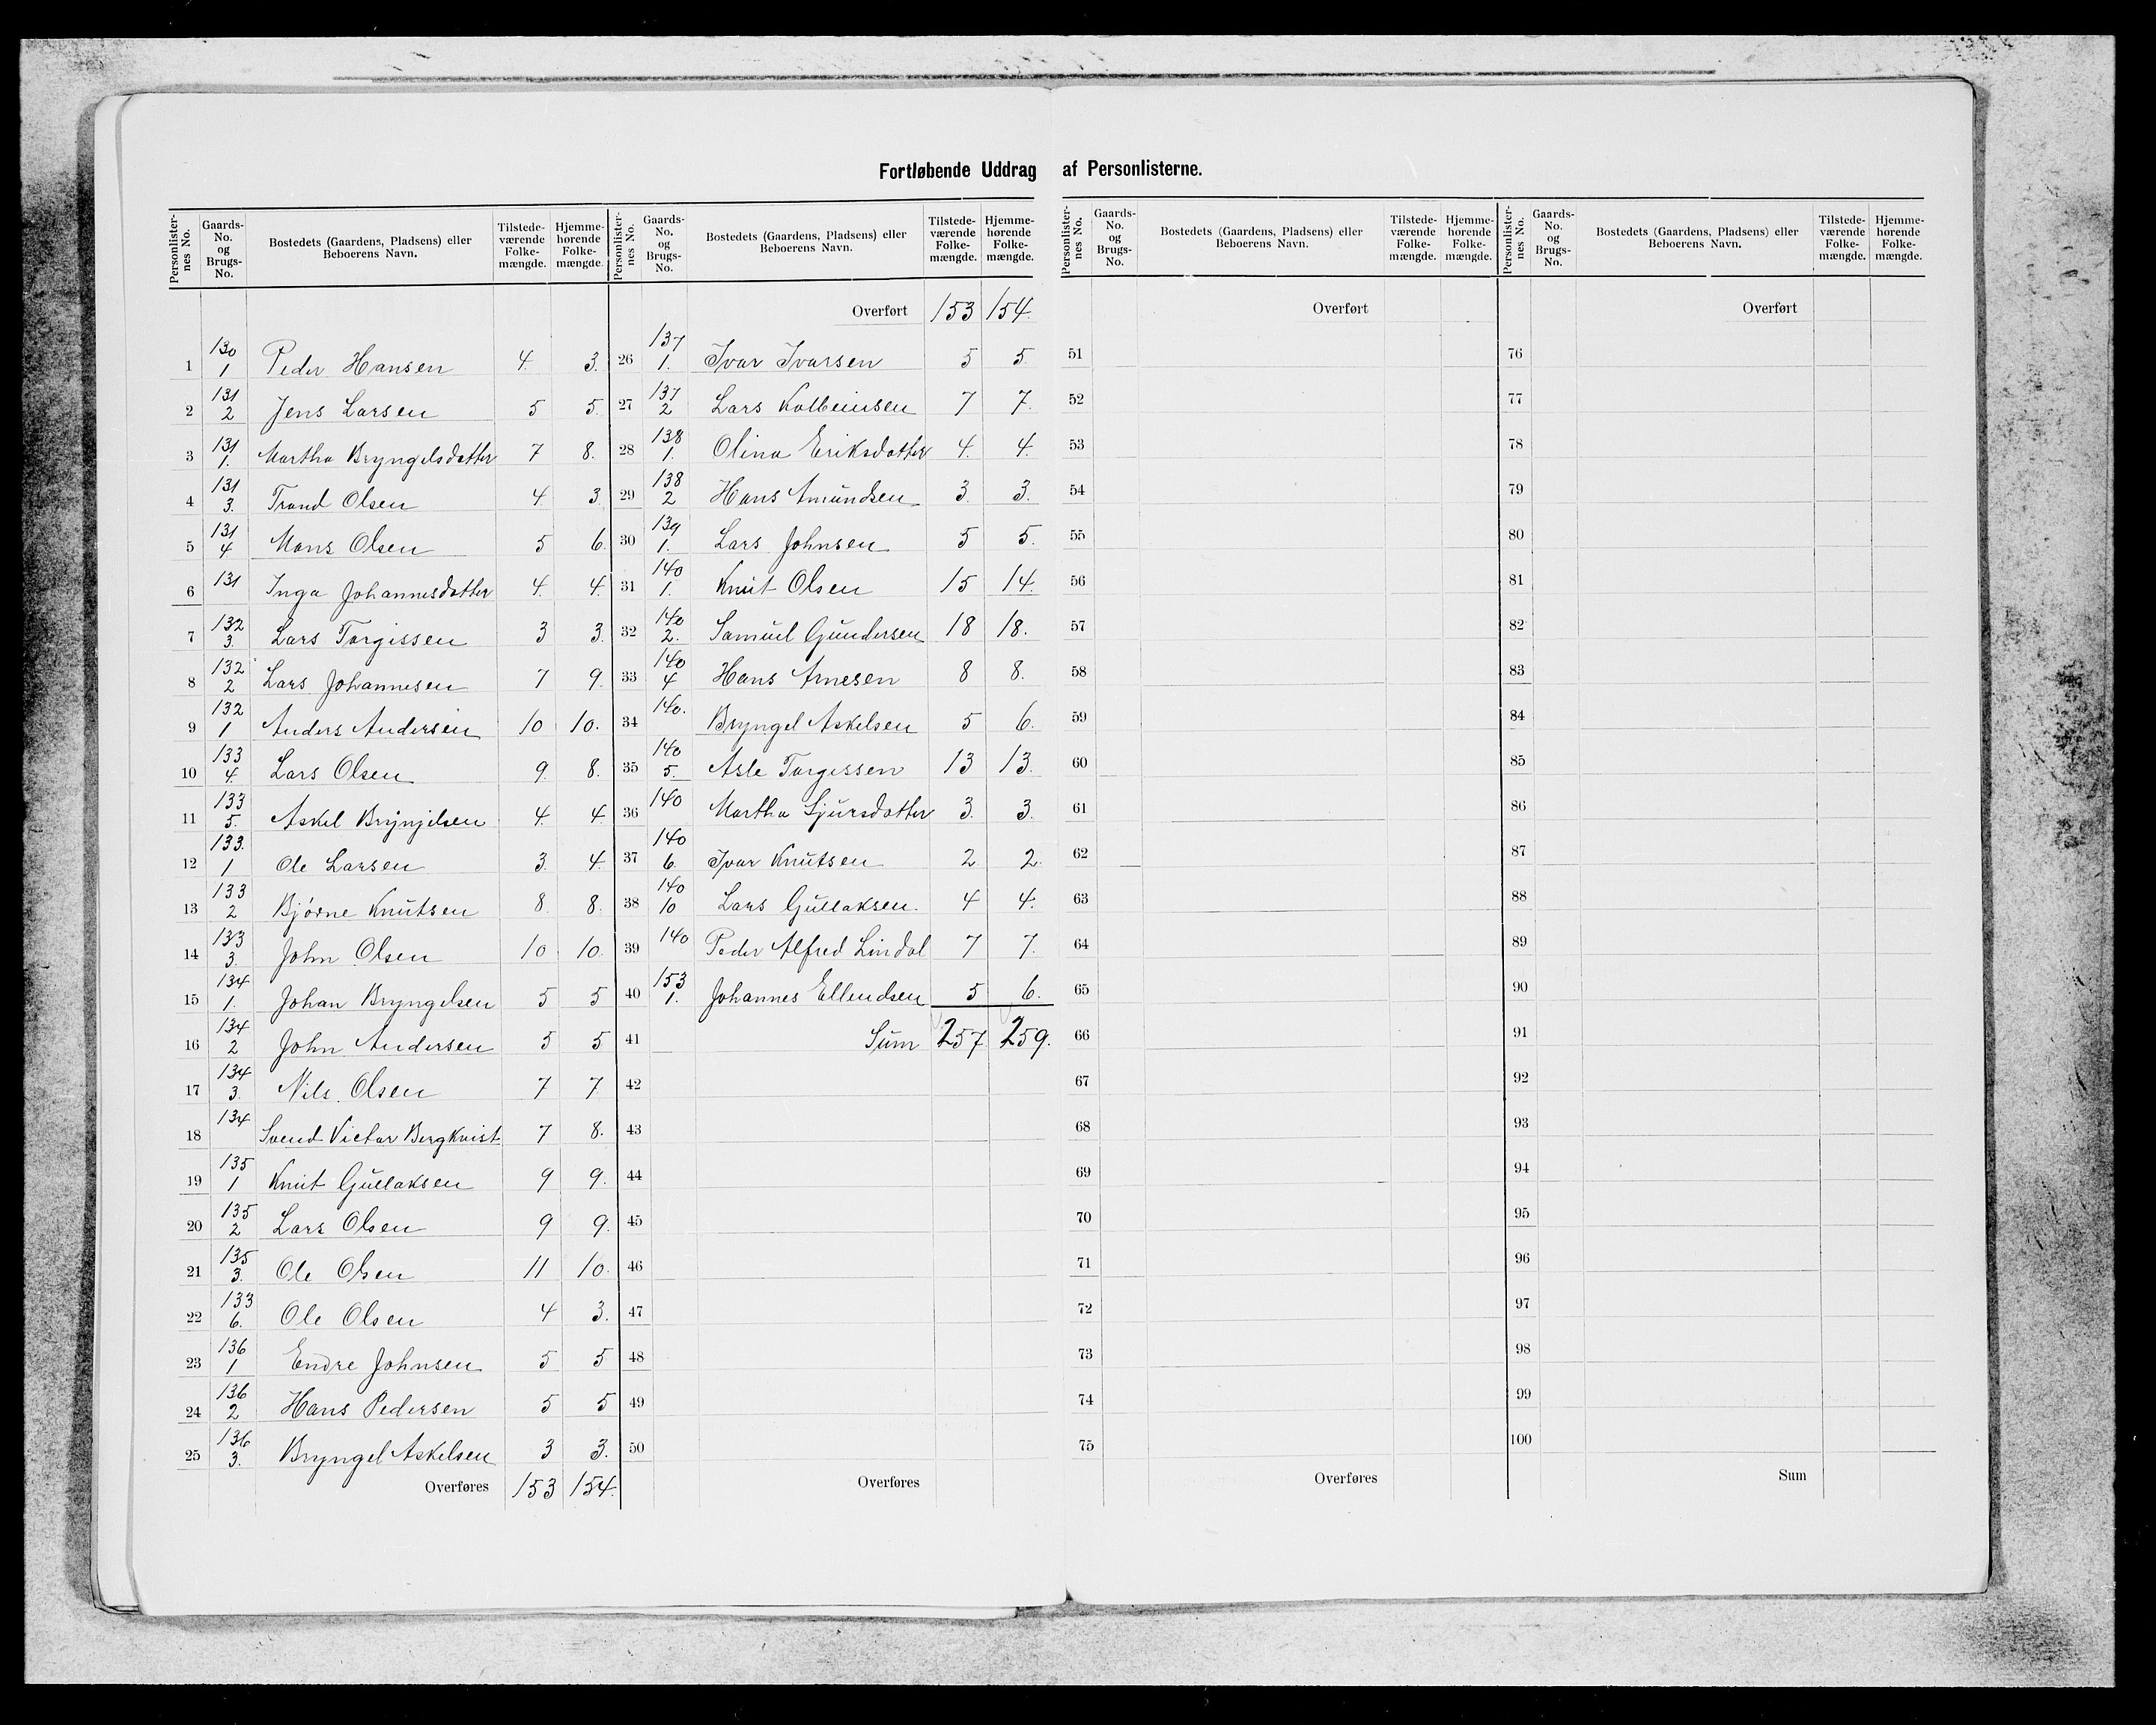 Fortløbende Uddrag af Personlisterne.
Personlister-nes No. Gaards-No. og Brugs-No. Bostedets (Gaardens, Pladsens) eller Beboerens Navn. Tilstede-værende Folke-mængde. Hjemme-hørende Folke-mængde.
1 130 1 Peder Hansen 4. 3.
2 131 2 Jens Larsen 5 5.
3 131 1. Martha Bryngelsdatter 7 8.
4 131 3. Trond Olsen 4. 3
5 131 4. Mons Olsen 5 6.
6 131 Inga Johannesdatter 4. 4.
7 132 3. Lars Torgissen 3 3.
8 132 2 Lars Johannesen 7 9.
9 132 1 Anders Andersen 10 10.
10 133 4. Lars Olsen 9. 8.
11 133 5. Askel Bryngelsen 4. 4
12 133. 1 Ole Larsen 3. 4.
13 133 2 Bjørne Knutsen 8. 8.
14 133 3. John Olsen 10 10.
15 134 1. Johan Bryngelsen 5 5
16 134 2 John Andersen 5 5
17 134 3. Nils Olsen 7 7
18 134 Svend Victor Bergkvist 7 8.
19 135 1 Knut Gullaksen 9 9.
20 135 2 Lars Olsen 9 9.
21 135 3. Ole Olsen 11 10.
22 133 6. Ole Olsen 4 3.
23 136 1 Endre Johnsen 5 5
24 136 2 Hans Pedersen 5 5
25 136 3. Bryngel Askelsen 3 3.
Overføres 153 154.
Personlister-nes No. Gaards-No. og Brugs-No. Bostedets (Gaardens, Pladsens) eller Beboerens Navn. Tilstede-værende Folke-mængde. Hjemme-hørende Folke-mængde.
Overført 153 154.
26 137 1. Ivar Ivarsen 5 5.
27 137 2 Lars Kolbeinsen 7 7.
28 138 1. Olina Eriksdatter 4. 4.
29 138 2 Hans Amundsen 3. 3.
30 139 1. Lars Johnsen 5 5.
31 140 1. Knut Olsen 15 14.
32 140 2. Samuel Gundersen 18 18.
33 140 4 Hans Arnesen 8 8.
34 140. Bryngel Askelsen 5 6.
35 140 5. Asle Torgissen 13 13.
36 140 Martha Sjursdatter 3. 3.
37 140 6. Ivar Knutsen 2 2.
38 140 10 Lars Gullaksen. 4 4.
39 140 Peder Alfred Lindal 7 7.
40 153 1. Johannes Ellendsen 5 6.
41 Sum 257 259.
42
43
44
45
46
47
48
49
50
Overføres
Personlister-nes No. Gaards-No. og Brugs-No. Bostedets (Gaardens, Pladsens) eller Beboerens Navn. Tilstede-værende Folke-mængde. Hjemme-hørende Folke-mængde.
Overført
51
52
53
54
55
56
57
58
59
60
61
62
63
64
65
66
67
68
69
70
71
72
73
74
75
Overføres
Personlister-nes No. Gaards-No. og Brugs-No. Bostedets (Gaardens, Pladsens) eller Beboerens Navn. Tilstede-værende Folke-mængde. Hjemme-hørende Folke-mængde.
Overført
76
77
78
79
80
81
82
83
84
85
86
87
88
89
90
91
92
93
94
95
96
97
98
99
100
Sum